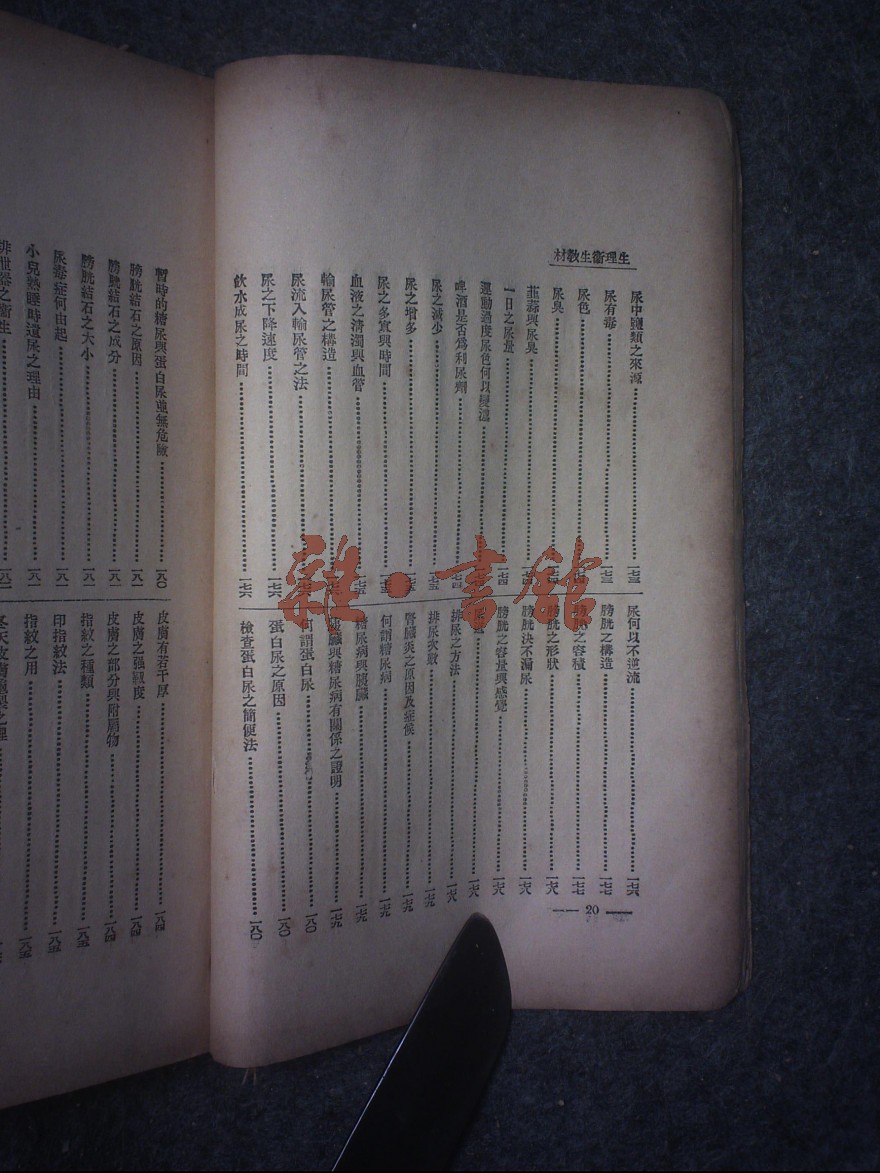 生理衞生教材
尿中鹽類之來源 一七三
尿有毒 一七三
尿色
尿臭
韮蒜與尿臭
一日之尿量 一七四
運動過度尿色何以變濃
啤酒是否爲利尿劑 一七四
尿之減少 一七五
尿之增多
尿之多寡與時間
血液之清濁與血管
輸尿管之構造
尿流入輸尿管之法
尿之下降速度 一七六
飲水成尿之時間 一七六
尿何以不逆流 一七六
膀胱之構造 一七七
膀胱之容積 一七七
膀胱之形狀 一七八
膀胱決不漏尿 一七八
膀胱之容量與感覺 一七八
一七八
排尿之方法 一七八
排尿次數 一七九
腎臟炎之原因及症候 一七九
何謂糖尿病 一七九
糖尿病與胰臟 一七九
胰臟與糖尿病有關係之證明 一七九
何謂蛋白尿 一八〇
蛋白尿之原因 一八〇
檢查蛋白尿之簡便法 一八〇
— 20 —
暫時的糖尿與蛋白尿並無危險 一八〇
膀胱結石之原因 一八一
膀胱結石之成分 一八一
膀胱結石之大小 一八一
尿毒症何由起 一八一
小兒熟睡時遺尿之理由 一八一
排泄器之衞生
皮膚有若干厚 一八四
皮膚之强靱度 一八四
皮膚之部分與附屬物 一八四
指紋之種類 一八五
印指紋法 一八五
指紋之用 一八五
雜·書館